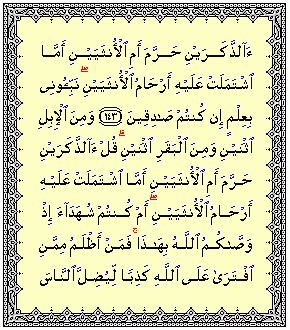 ءَآلذَّكَرَيْنِ حَرَّمَ أَمِ ٱلْأُنثَيَيْنِ أَمَّا
ٱشْتَمَلَتْ عَلَيْهِ أَرْحَامُ ٱلْأُنثَيَيْنِ ۖ نَبِّـُٔونِى
بِعِلْمٍ إِن كُنتُمْ صَـٰدِقِينَ ﴿١٤٣﴾ وَمِنَ ٱلْإِبِلِ
ٱثْنَيْنِ وَمِنَ ٱلْبَقَرِ ٱثْنَيْنِ ۗ قُلْ ءَآلذَّكَرَيْنِ
حَرَّمَ أَمِ ٱلْأُنثَيَيْنِ أَمَّا ٱشْتَمَلَتْ عَلَيْهِ
أَرْحَامُ ٱلْأُنثَيَيْنِ ۖ أَمْ كُنتُمْ شُهَدَآءَ إِذْ
وَصَّىٰكُمُ ٱللَّهُ بِهَـٰذَا ۚ فَمَنْ أَظْلَمُ مِمَّنِ
ٱفْتَرَىٰ عَلَى ٱللَّهِ كَذِبًا لِّيُضِلَّ ٱلنَّاسَ